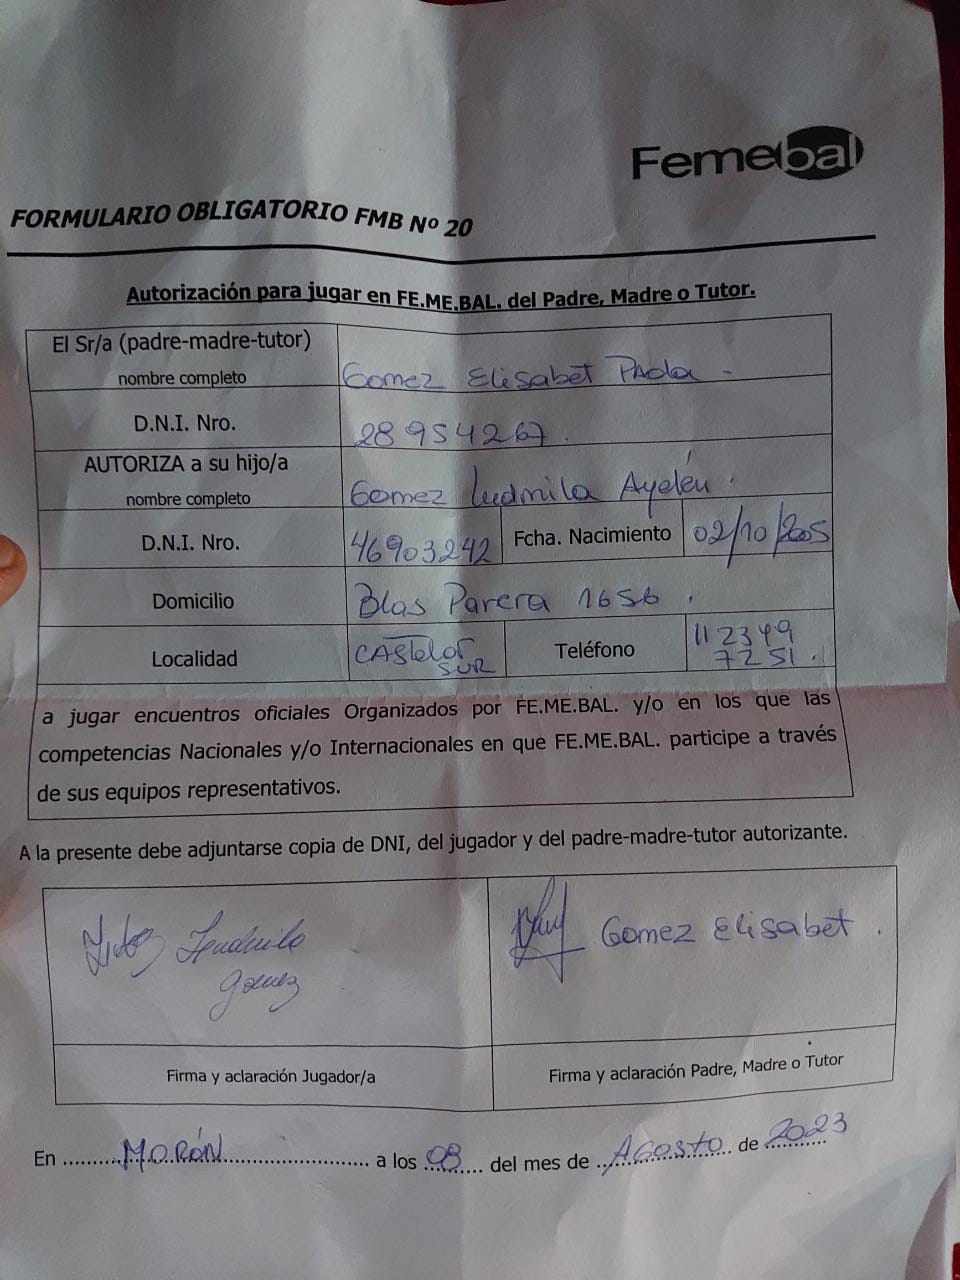 Femebal
FORMULARIO OBLIGATORIO FMB Nº 20
Autorización para jugar en FE.ME.BAL. del Padre, Madre o Tutor.
El Sr/a (padre-madre-tutor)
nombre completo
Gomez Elisabet Paola -
D.N.I. Nro.
28954267.
AUTORIZA a su hijo/a
nombre completo
Gomez Ludmila Ayelén.
D.N.I. Nro.
46903242
Fcha. Nacimiento
02/10/2005
Domicilio
Blas Parera 1656.
Localidad
CASTELAR
SUR
Teléfono
112349
7251.
a jugar encuentros oficiales Organizados por FE.ME.BAL. y/o en los que las
competencias Nacionales y/o Internacionales en que FE.ME.BAL. participe a través
de sus equipos representativos.
A la presente debe adjuntarse copia de DNI, del jugador y del padre-madre-tutor autorizante.
Ludmila
Gomez
Gomez Elisabet.
Firma y aclaración Jugador/a
Firma y aclaración Padre, Madre o Tutor
En MORÓN a los 08 del mes de AGOSTO de 2023